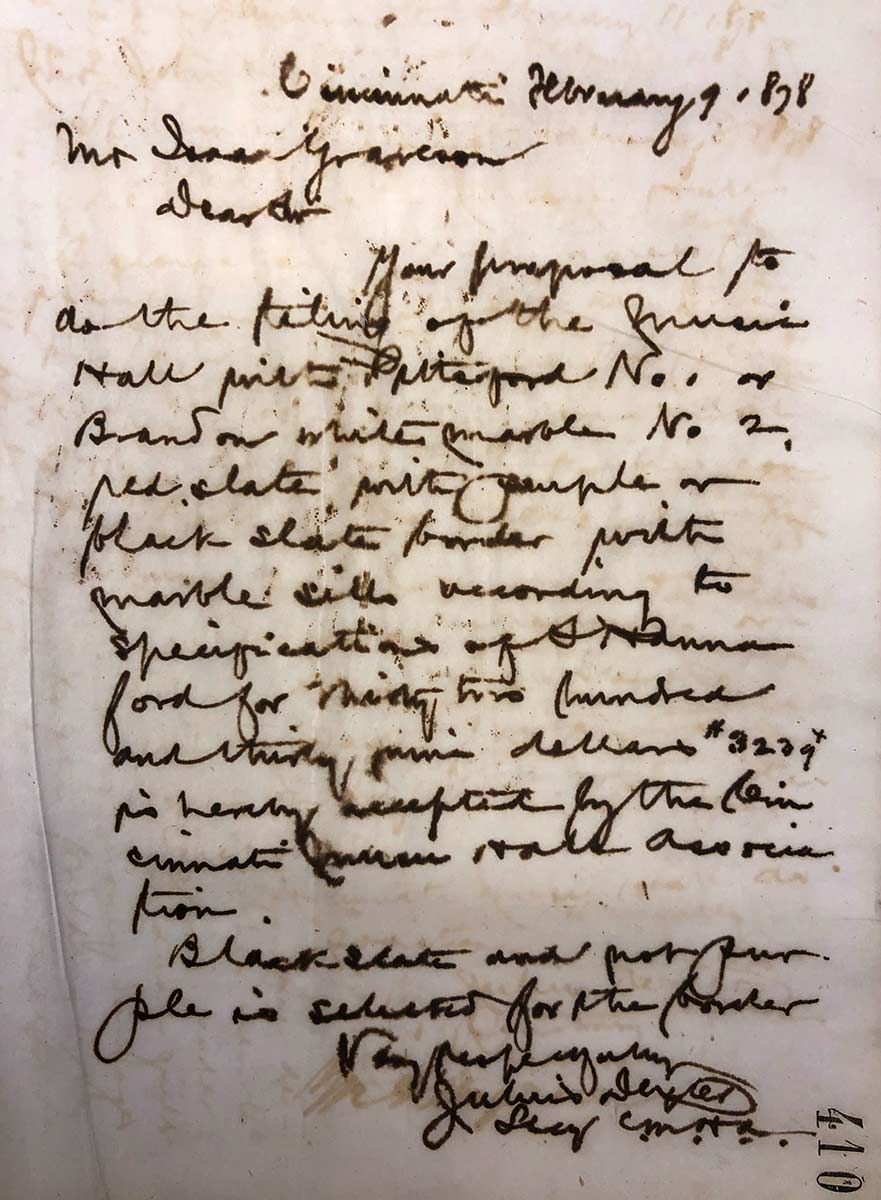 Cincinnati February 9, 1878
Mr Isaac Graveson
Dear Sir
Your proposal to
do the tiling of the Music
Hall with Pittsford No. 1 or
Brandon white marble No 2,
red slate with purple or
black slate border with
marble sills according to
specifications of S Hanna
ford for thirty two hundred
and thirty nine dollars $3239
is hereby accepted by the Cin
cinnati Music Hall Associa
tion.
Black slate and not pur
ple is selected for the border
Very respectfully
Julius Dexter
Secy C.M.H.A.
410